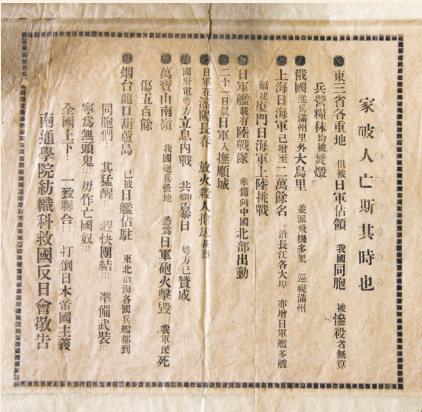 家破人亡斯其時也
東三省各重地 俱被日軍佔領 我國同胞 被慘殺者無算
兵營糧秣均被焚燬
俄國進兵滿州里外大烏里 並派飛機多架 巡視滿州
上海日海軍已增至二萬餘名 沿長江各大埠 亦增日軍艦多艘
福建廈門日海軍上陸挑戰
日軍艦載有陸戰隊 準備向中國北部出動
二十一日放日軍入撫順城
日軍在瀋陽長春 放火殺人
國府電粵方立息內戰 共禦暴日 粵方已贊成
萬寶山南嶺 我國兵營地 悉為日軍砲火擊毀 我軍民死
傷五百餘
烟台龍口葫蘆島 已被日艦佔駐 東北沿海各國兵艦都到
同胞們 其猛醒 趕快團結 準備武裝
寧為無頭鬼 毋作亡國奴
全國上下 一致聯合 打倒日本帝國主義
南通學院紡織科救國反日會敬告